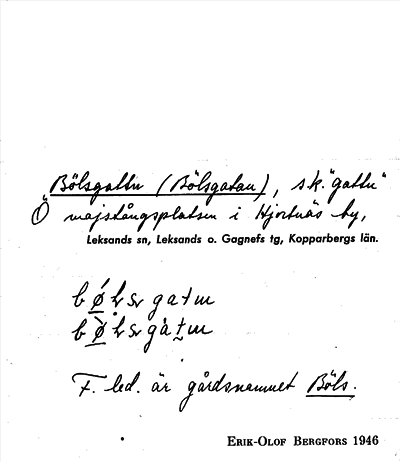 Bölsgattu (Bölsgatan), s.k. "gattu"
Ö majstångsplatsen i Hjortnäs by,
Leksands sn, Leksands o. Gagnefs tg, Kopparbergs län.
F. led. är gårdsnamnet Böls.
ERIK-OLOF BERGFORS 1946